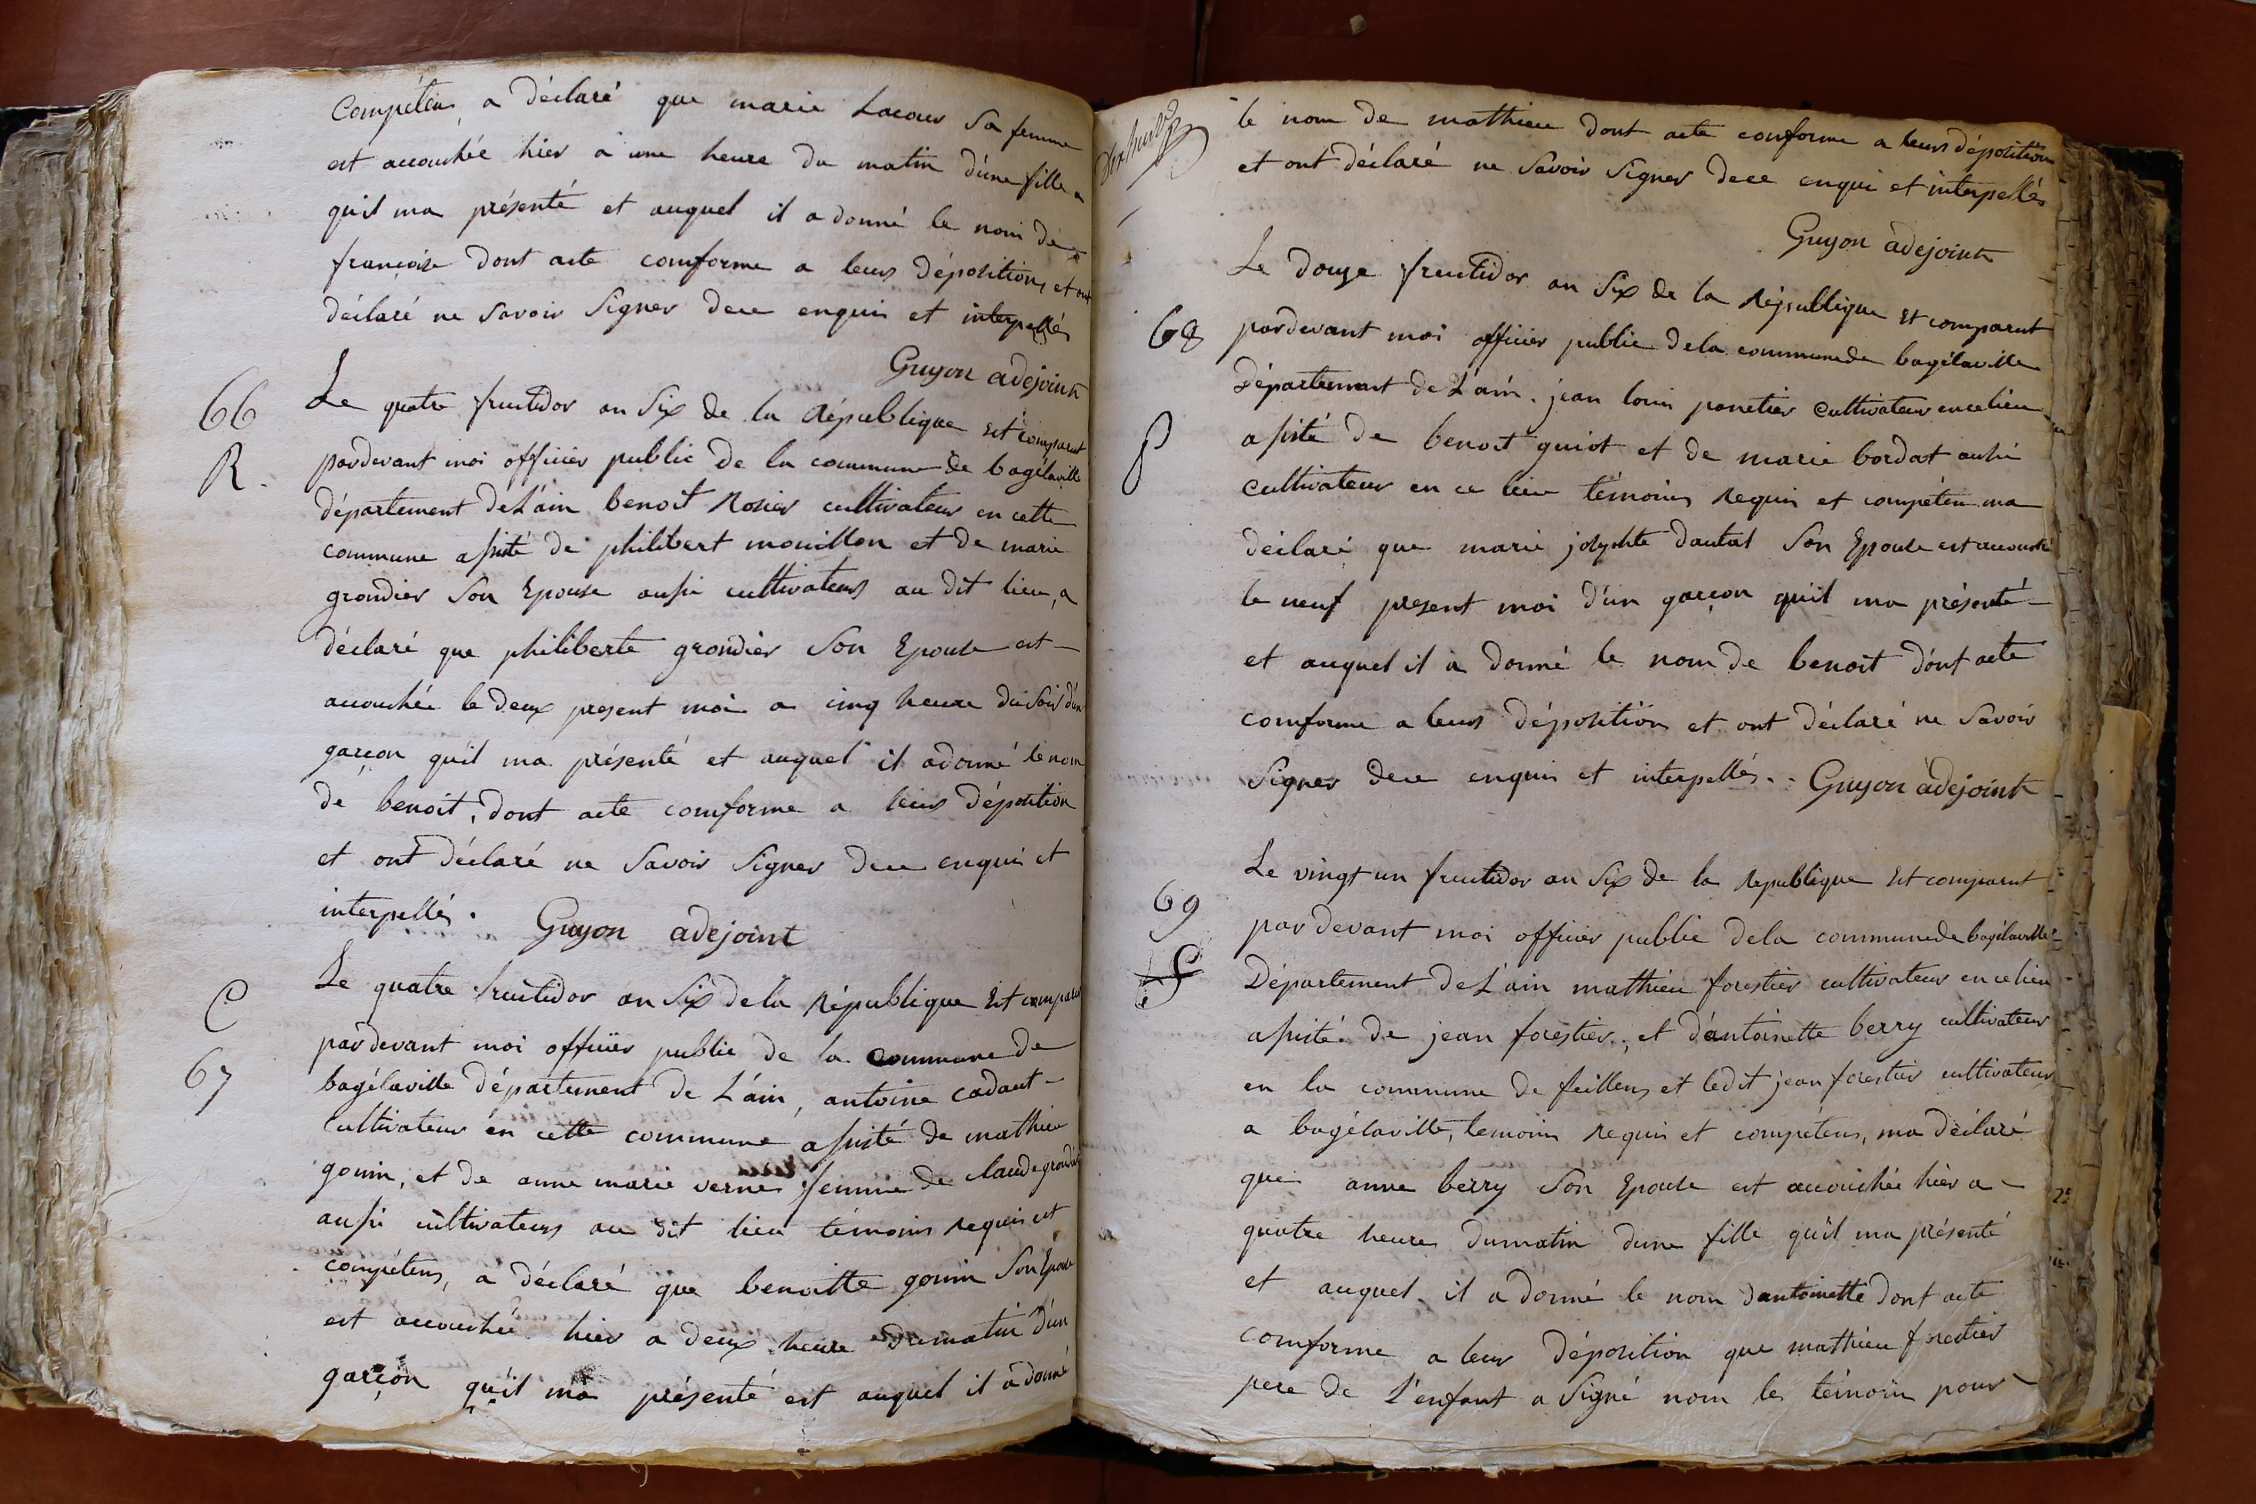 Compétens a déclaré que marie Lacour Sa femme
est accouchée hier a une heure du matin d'une fille
quil ma présenté et auquel il a donné le nom de
françoise dont acte comforme a leurs déposition, et ont
déclaré ne Savoir Signer de ce enquis et interpellés
Guyon adejoint
66
Le quatre fructidor an Six de la République Est comparut
R.
pardevant moi officier public de la commune de bagélaville
département de L'ain benoit Rosier cultivateur en cette
commune assisté de philibert mouillon et de marie
grondier Son Epouse aussi cultivateurs au dit lieu, a
déclaré que philiberte grondier Son Epouse est
accouchée le deux present moi a cinq heure du Soir d'un
garcon quil ma présenté et auquel il a donné le nom
de benoit, dont acte comforme a leurs déposition
et ont déclaré ne Savoir Signer de ce enquis et
interpellés. Guyon adejoint
C
Le quatre fructidor an Six de la République Est comparut
67
pardevant moi officier public de la commune de
bagélaville département de L'ain, antoine cadaut
Cultivateur en cette commune assisté de mathieu
gonin, et de anne marie verne femme de claude grondier
aussi cultivateurs au dit lieu témoins Requis et
compétens, a déclaré que benoitte gonin Son Epouse
est accouchée hier a deux heure du matin d'un
garcon qu'il ma présenté est auquel il a donné
le nom de mathieu dont acte conforme a leurs déposition
et ont déclaré ne Savoir Signer de ce enqui et interpellés
Guyon adejoint
Le douze fructidor an Six de la République Et comparut
68
pardevant moi officier public de la commune de bagélaville
Département de L'ain. jean louis panetier Cultivateur en ce lieu
P
assisté de benoit guiot et de marie bordat aussi
Cultivateur en ce lieu témoins Requis et compéten ma
déclaré que marie josephte dautat Son Epouse est accouchée
le neuf present moi d'un garçon qu'il ma présenté
et auquel il a donné le nom de benoit dont acte
comforme a leurs déposition et ont déclaré ne Savoir
Signer de ce enquis et interpellés. Guyon adejoint
Le vingt un fructidor an Six de la Republique Est comparut
69
par devant moi officier public de la commune de bagélaville
f
Département de L'ain mathieu forestier cultivateur en ce lieu
assisté de jean forestier, et d'antoinette berry cultivateur
en la commune de feillens et ledit jean forestier cultivateur
a bagélaville, temoins Requis et compétens, ma déclaré
que anne berry Son Epouse est accouchée hier a
quatre heure du matin d'une fille qu'il ma présenté
et auquel il a donné le nom dantoinette dont acte
comforme a leur déposition que mathieu forestier
pere de L'enfant a Signé nom les témoin pour